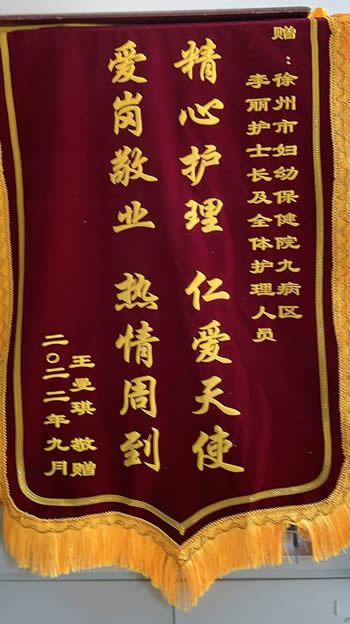 赠：徐州市妇幼保健院九病区
李丽护士长及全体护理人员
精心护理 仁爱天使
爱岗敬业 热情周到
王曼琪 敬赠
二〇二二年九月